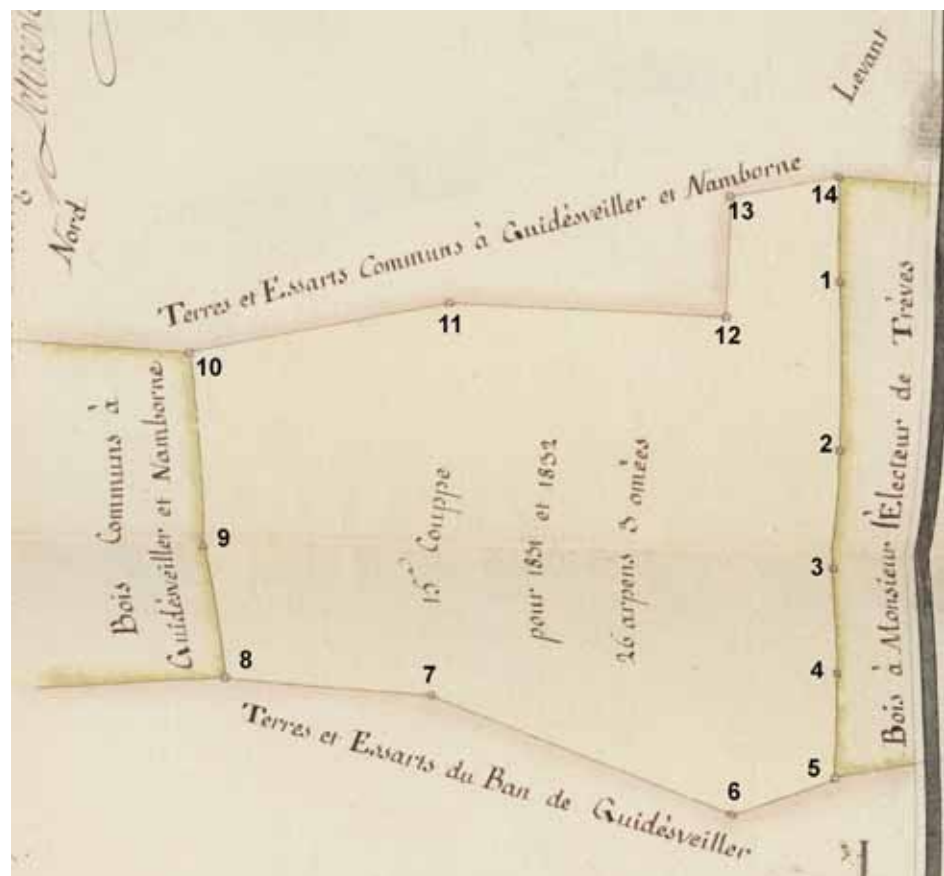 Levant
Nord
Terres et Essarts Communs à Guidèsveiller et Namborne
14
13
1
12
11
10
2
3
4
5
6
7
8
9
Bois Communs à
Guidèsveiller et Namborne
15.me Couppe
pour 1831 et 1832
26 arpens 3 omées
Bois à Monsieur l'Électeur de Trèves
Terres et Essarts du Ban de Guidèsveiller